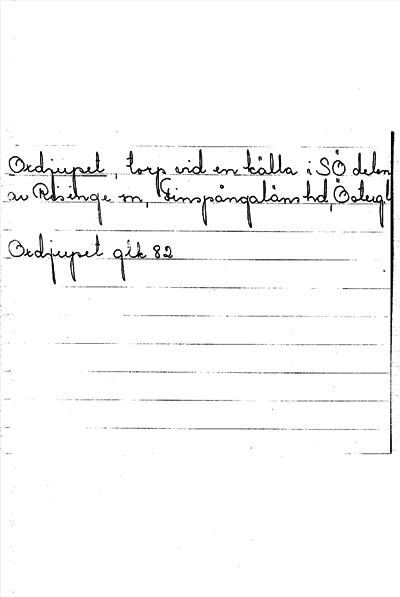 Oxdjupet, torp vid en källa i SÖ delen
av Risinge sn, Finspångaläns hd, Östergl
Oxdjupet glk 82